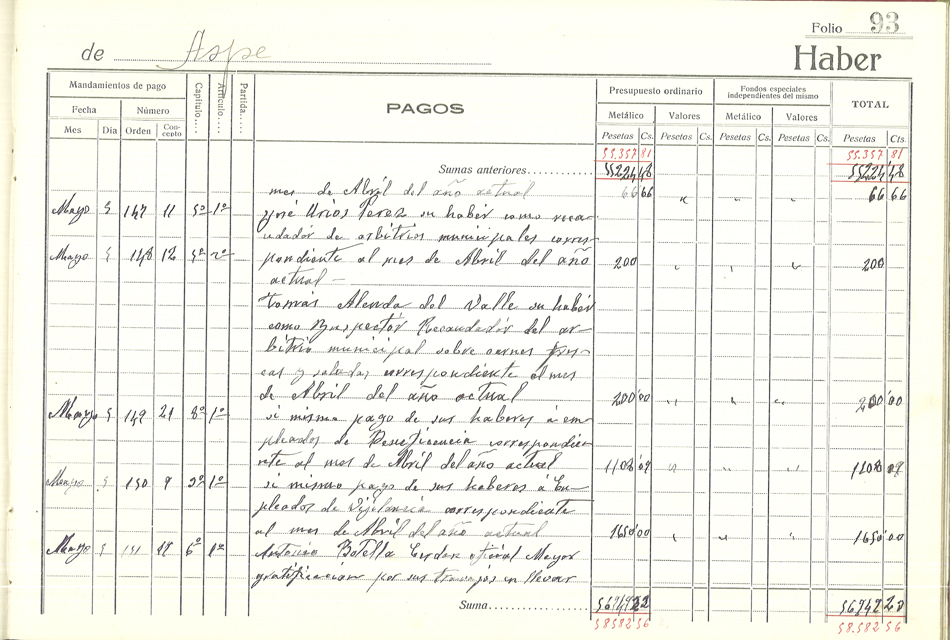 Folio 93
de Aspe
Haber
Mandamientos de pago
Capítulo....
Artículo....
Partida....
PAGOS
Presupuesto ordinario
Fondos especiales independientes del mismo
TOTAL
Fecha Número
Metálico Valores Metálico Valores
Mes Dia Orden Concepto
Pesetas Cs. Pesetas Cs. Pesetas Cs. Pesetas Cs. Pesetas Cts
55.357 81 55.357 81
Sumas anteriores
mes de Abril del año actual 66 66 66 66
Mayo 5 147 11 5º 1º José Urios Perez su haber como recau-
dador de arbitrios municipales corres-
Mayo 5 148 12 5º 2º pondiente al mes de Abril del año 200 200
actual —
Tomás Alenda del Valle su haber
como Inspector Recaudador del ar-
bitrio municipal sobre carnes fres-
cas y saladas correspondiente al mes
de Abril del año actual 200 00 200 00
Mayo 5 149 21 8º 1º si mismo pago de sus haberes á em-
pleados de Beneficencia correspondie-
nte al mes de Abril del año actual
Mayo 5 150 9 3º 1º si mismo pago de sus haberes á Em-
pleados de Vigilancia correspondiente
al mes de Abril del año actual 1650 00 1650 00
Mayo 5 151 6º 1º Antonio Botella oficial Mayor
gratificacion por sus trabajos en llevar
Suma
58582 56 58.582 56